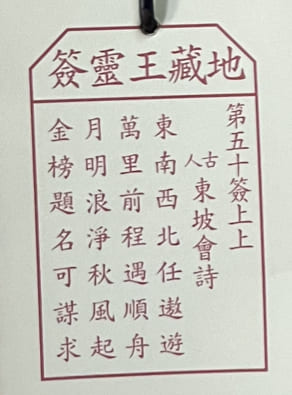 地藏王靈簽
第五十簽上上
古人東坡會詩
東南西北任遨遊
萬里前程遇順舟
月明浪淨秋風起
金榜題名可謀求